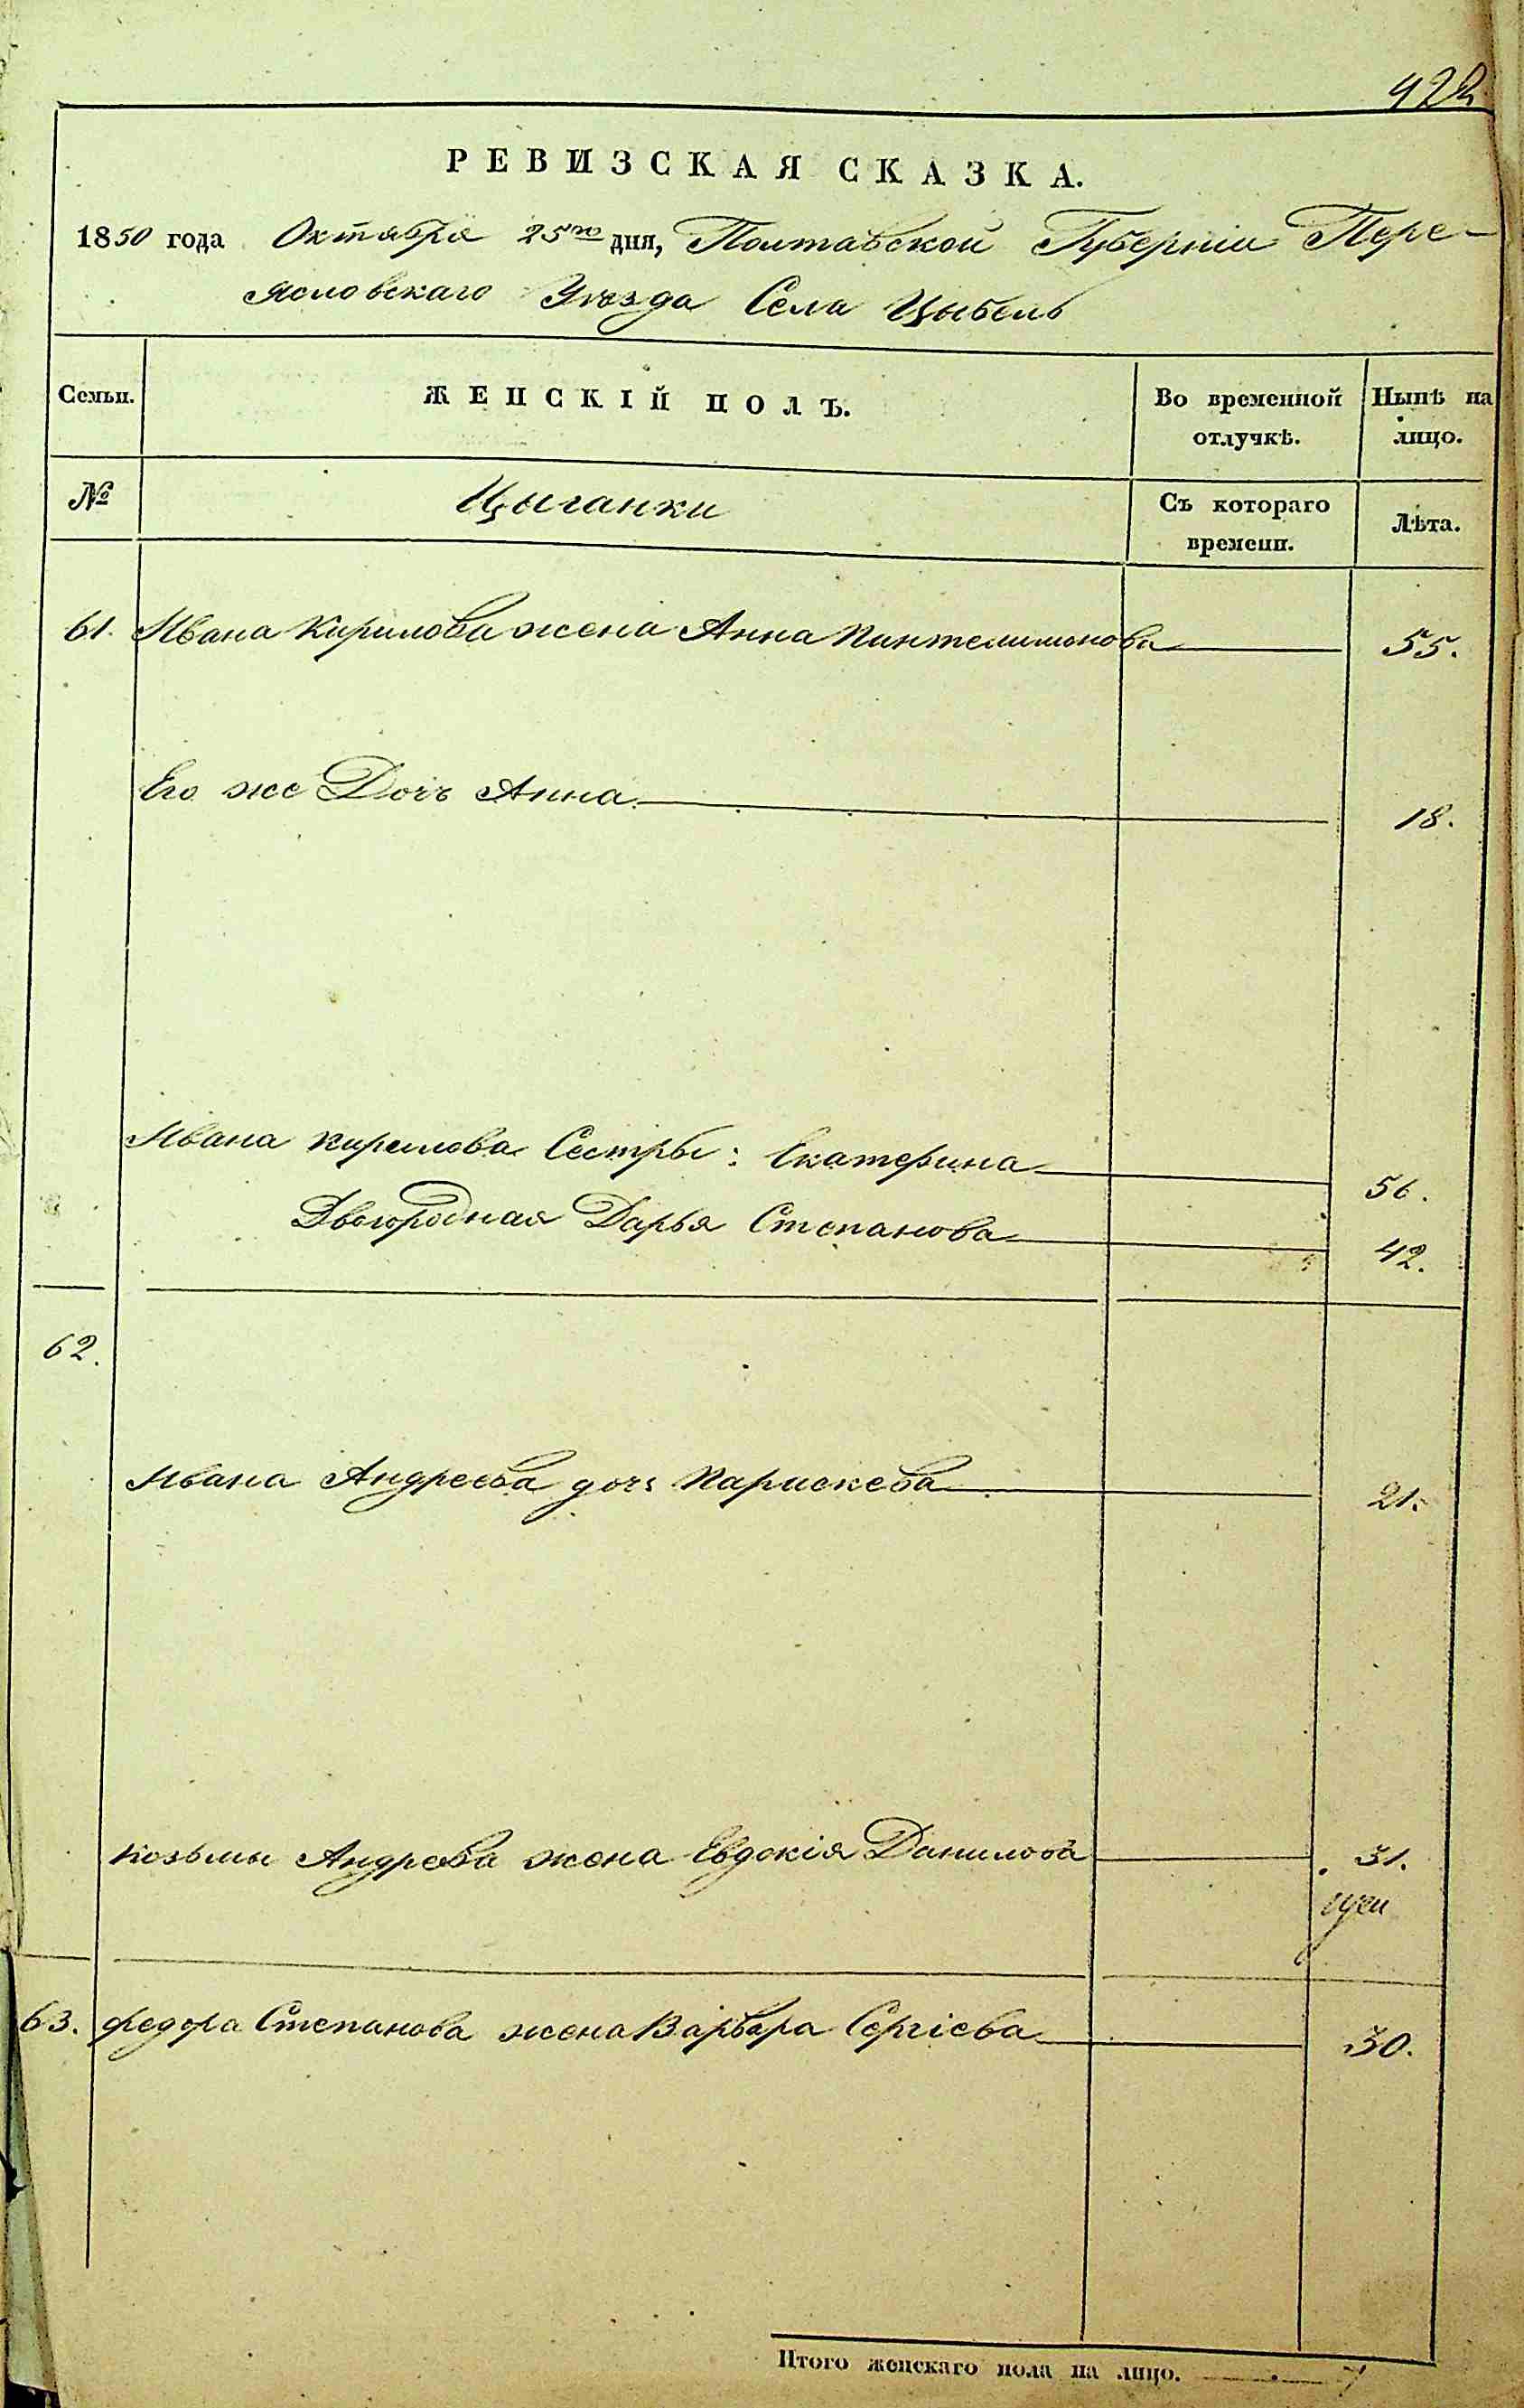 922
РЕВИЗСКАЯ СКАЗКА.
1850 года Октября 25го дня, Полтавской Губерніи Пере-
яславскаго Уѣзда Села Цыбель
Семьи. ЖЕНСКІЙ ПОЛЪ. Во временной отлучкѣ. Нынѣ на лицо.
№ Цыганки Съ котораго времени. Лѣта.
61. Ивана Кирилова жена Анна Пантелимонова 55.
Его же Дочь Анна 18.
Ивана Кирилова Сестры: Екатерина 56.
Двоюродная Дарья Степанова 42.
62.
Ивана Андреева дочь Параскева 21.
Козьмы Андреева жена Евдокія Данилова 31.
63. Федора Степанова жена Варвара Сергіева 30.
Итого женскаго пола на лицо. 7